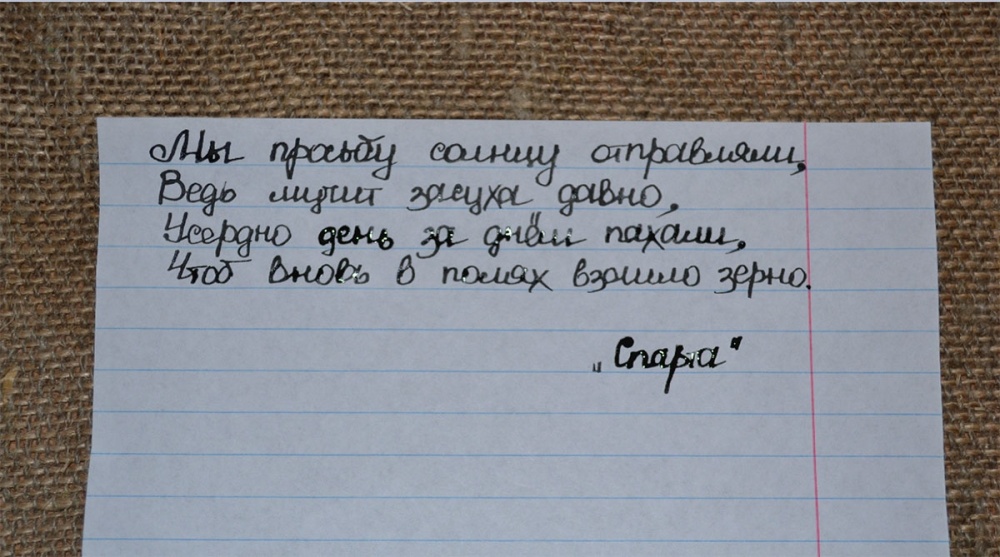 Мы просьбу солнцу отправляли,
Ведь мучит засуха давно,
Усердно день за днём пахали,
Чтоб вновь в полях взошло зерно.
„Спарта"